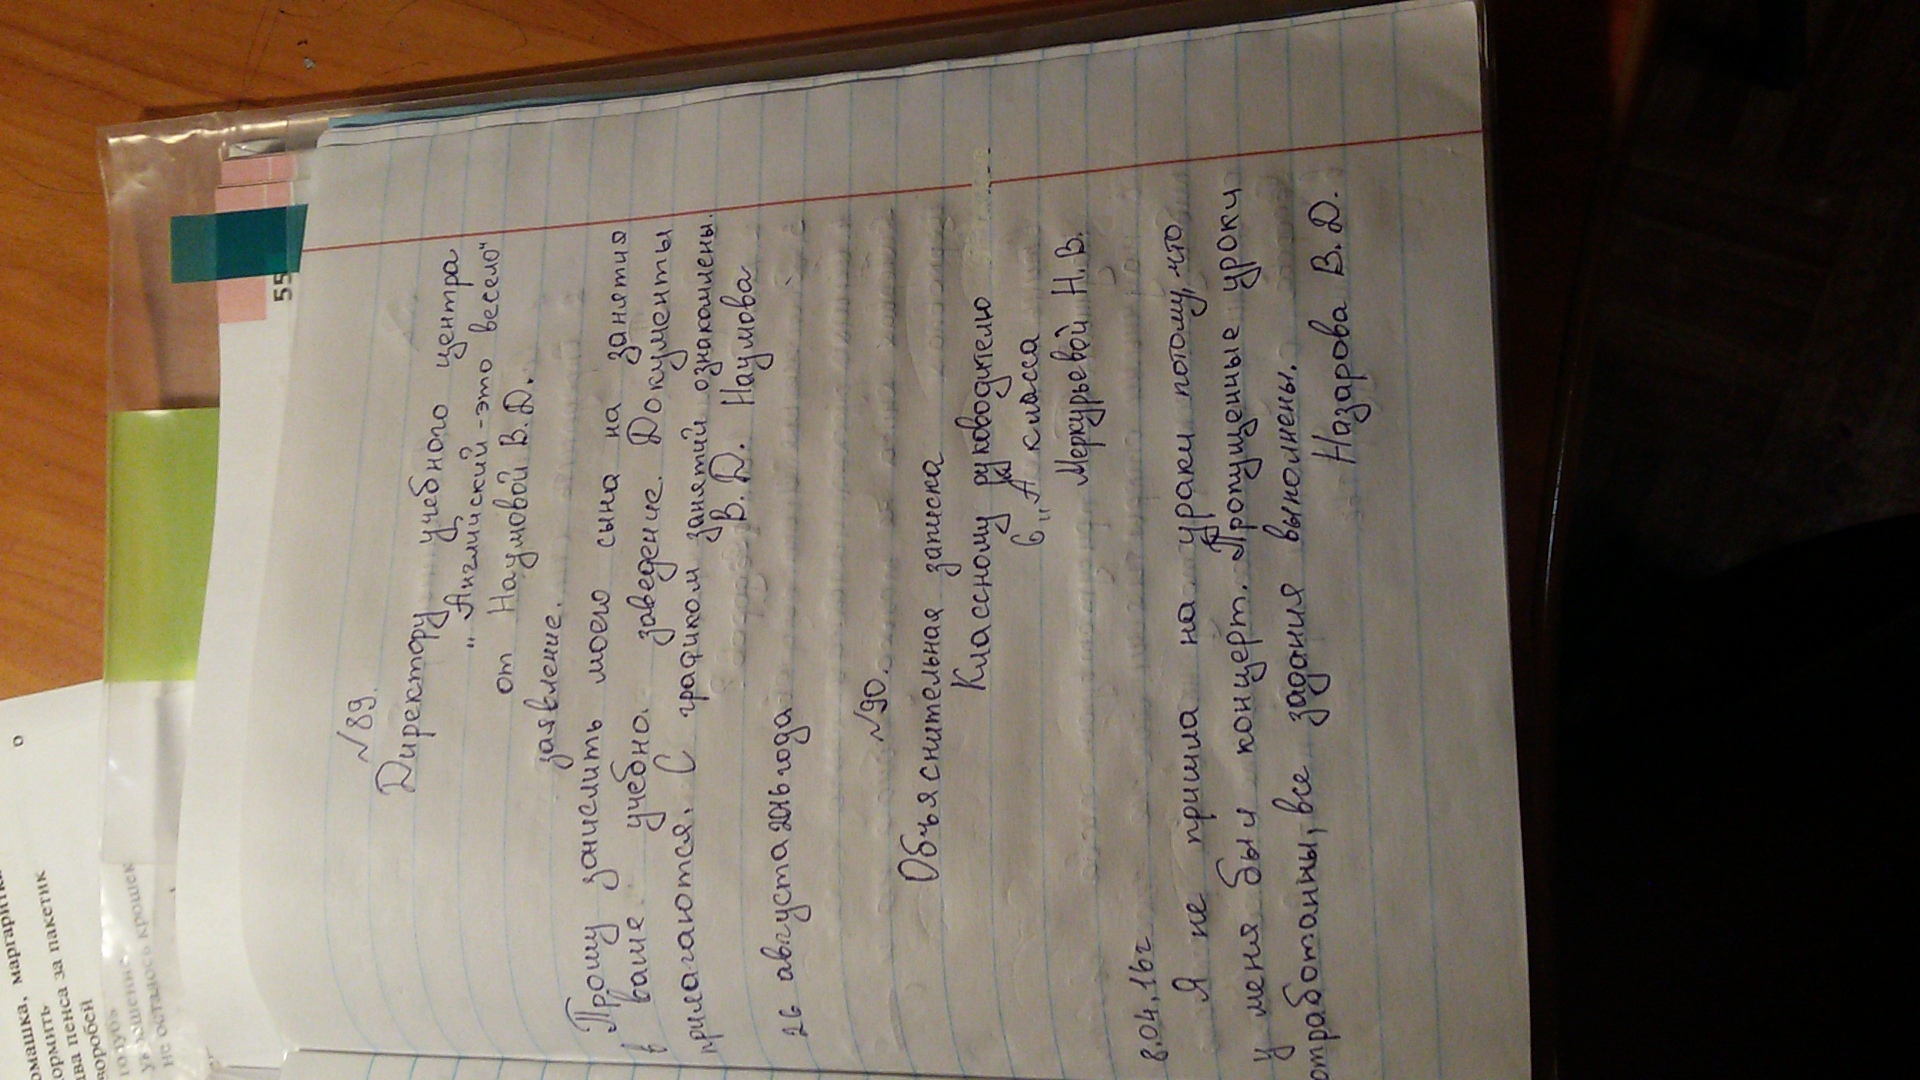 №89.
Директору учебного центра
"Английский - это весело"
от Наумовой В. Д.
заявление.
Прошу зачислить моего сына на занятия
в ваше учебно. заведение. Документы
прилагаются. С графиком занятий ознакомлены.
В. Д. Наумова
26 августа 2016 года
№90.
Объяснительная записка
Классному руководителю
6 „А" класса
Меркурьевой Н. В.
8.04.16г
Я не пришла на уроки потому, что
у меня был концерт. Пропущенные уроки
отработанны, все задания выполнены.
Назарова В. Д.
55
омашка, маргаритка
ормить
два пенса за пакетик
воробей
голубь
не осталось крошек